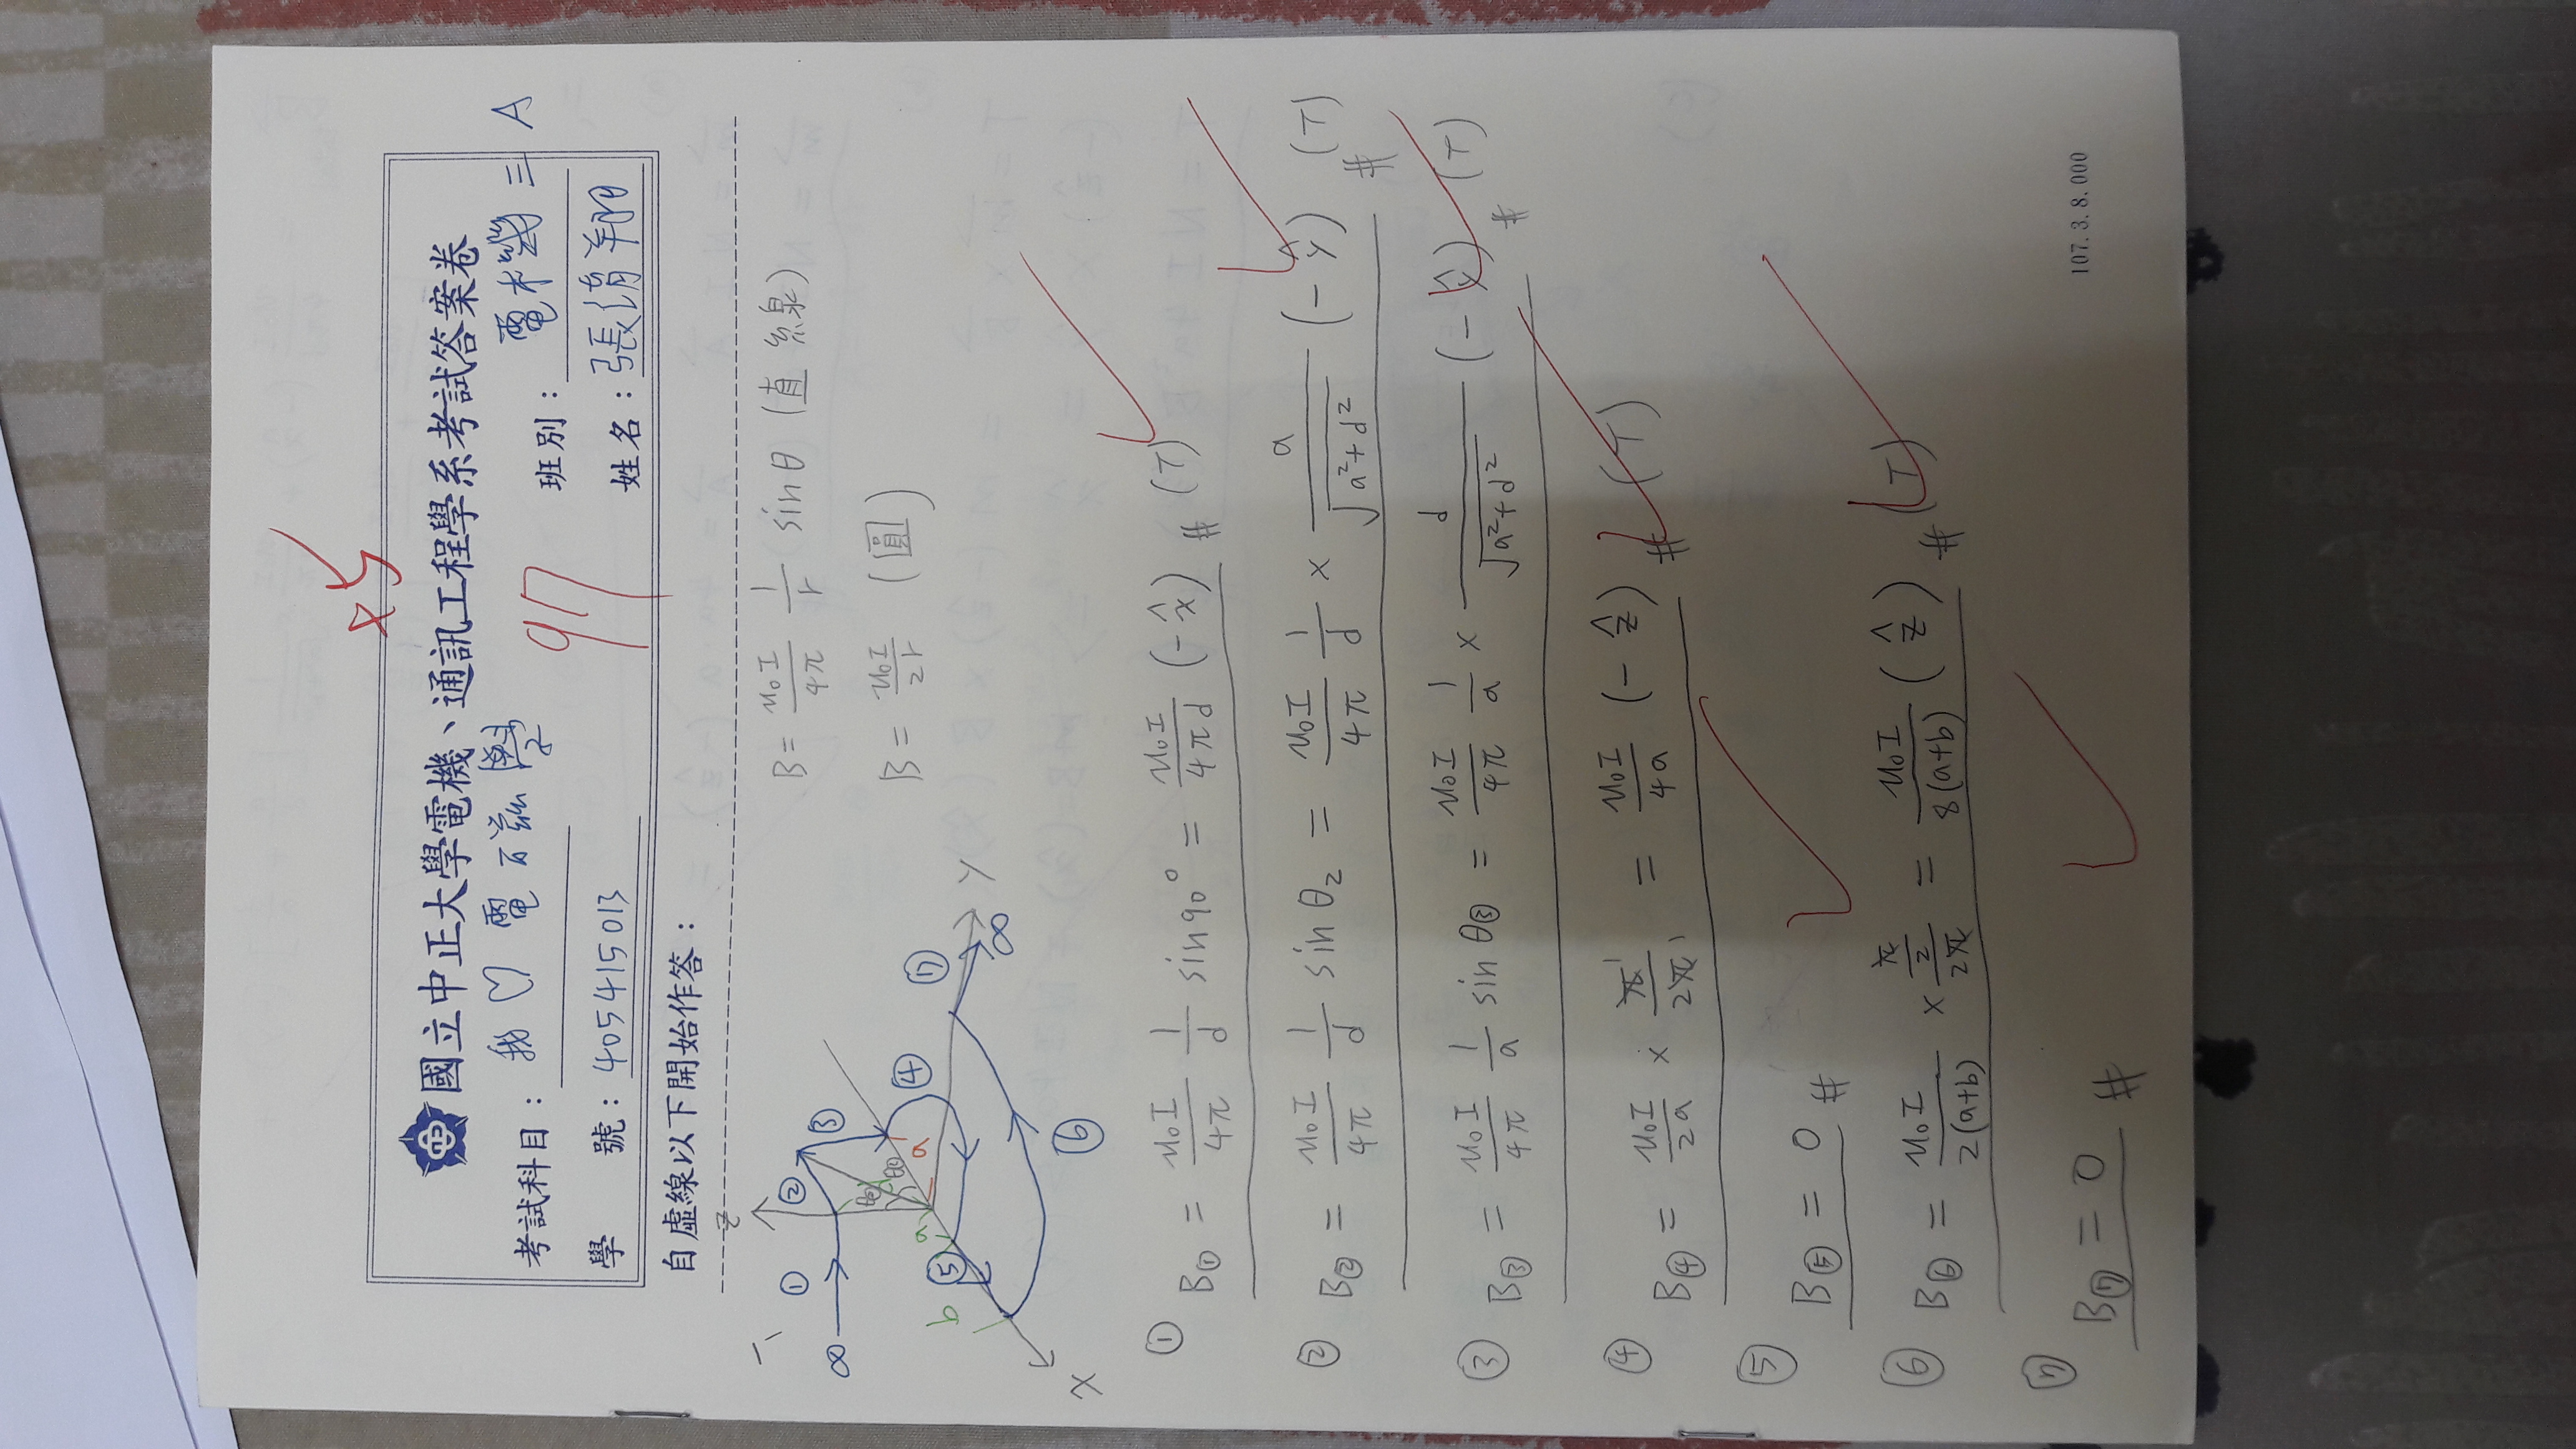 +5
國立中正大學電機、通訊工程學系考試答案卷
考試科目： 我♡電磁學
班別： 電機三A
97
學 號： 405415013
姓名：
自虛線以下開始作答：
一、
z
① ② ③ ④ ⑤ ⑥ ⑦
∞
θ② θ③
a
a
b
∞
y
x
B = μ₀I/4π 1/r sinθ (直線)
B = μ₀I/2r (圓)
① B① = μ₀I/4π 1/d sin90° = μ₀I/4πd (-x̂) # (T)
② B② = μ₀I/4π 1/d sinθ₂ = μ₀I/4π 1/d × a/√(a²+d²) (-ŷ) # (T)
③ B③ = μ₀I/4π 1/a sinθ③ = μ₀I/4π 1/a × d/√(a²+d²) (-ŷ) # (T)
④ B④ = μ₀I/2a × π/2π = μ₀I/4a (-ẑ) # (T)
⑤ B⑤ = 0 #
⑥ B⑥ = μ₀I/2(a+b) × (π/2)/2π = μ₀I/8(a+b) (ẑ) # (T)
⑦ B⑦ = 0 #
107.3.8.000